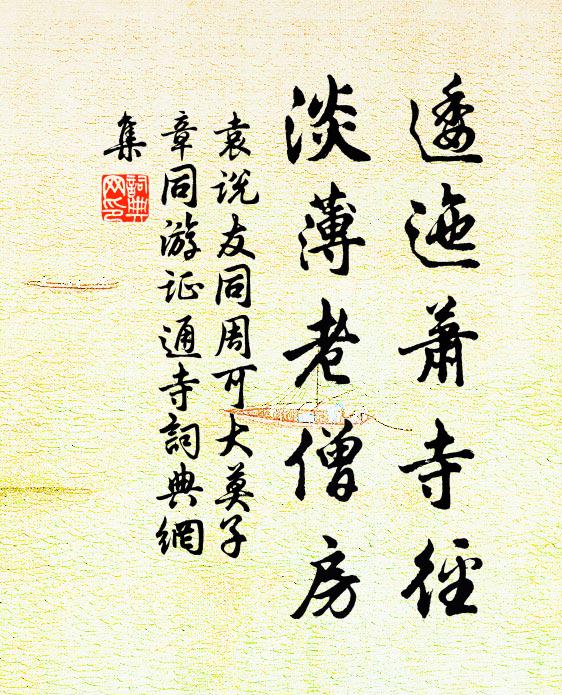 逶迤蕭寺徑
淡薄老僧房
袁说友同周可大莫子
章同游证通寺詞典網
集
詞典
网印